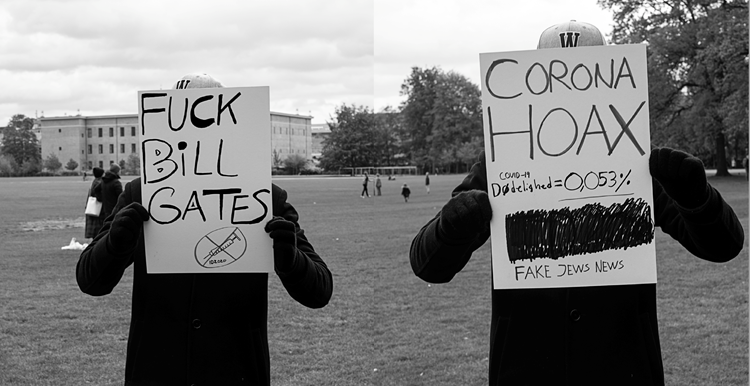 W
FUCK
BILL
GATES
W
CORONA
HOAX
COVID-19
Dødelighed = 0,053%
FAKE JEWS NEWS